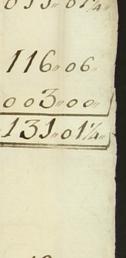 116 " 06 "
003 " 00 "
131 " 01¼ "